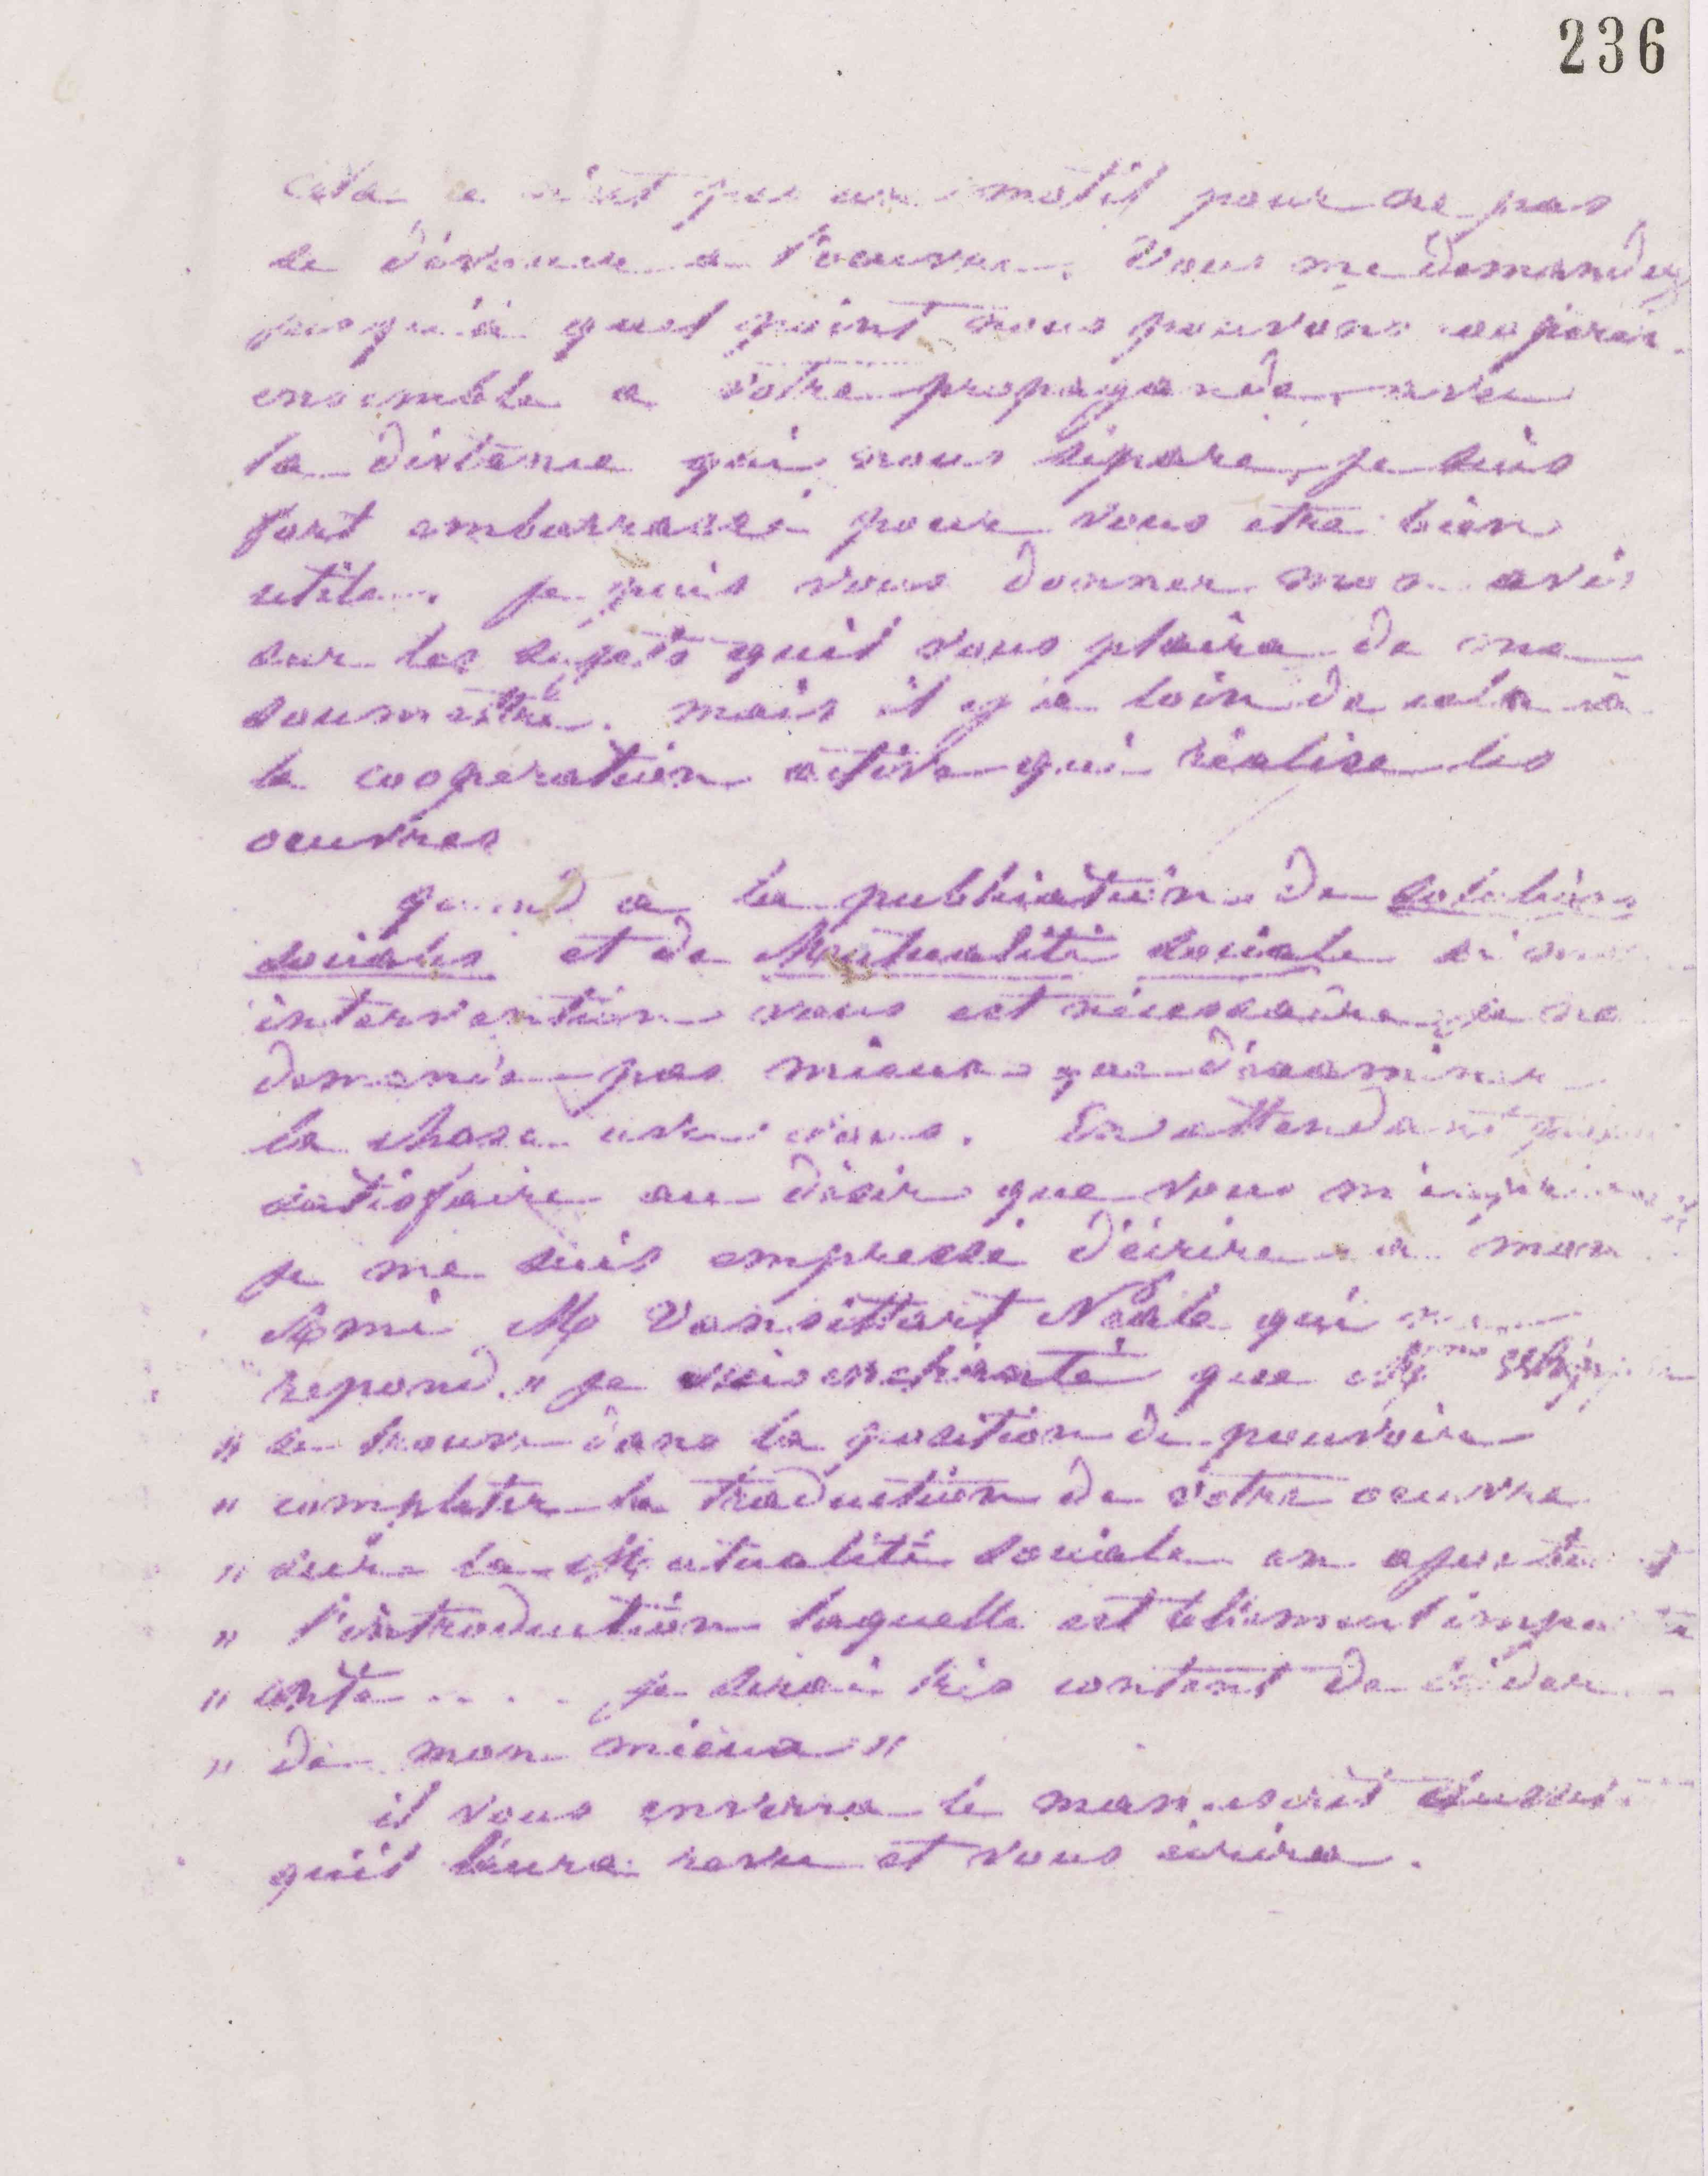 236
Cela ce n'est pas un motif pour ne pas
se dévouer a l'oeuvre. Vous me demandez
jusqu'à quel point nous pouvons coopérer
ensemble a votre propagande, avec
la distance qui nous sépare, je suis
fort embarrassé pour vous etre bien
utile. je puis vous donner mon avis
sur les sujets quil vous plaira de me
soumettre. mais il y a loin de cela à
la cooperation active qui réalise les
oeuvres
quand a la publication de solutions
sociales et de Mutualité sociale si mon
intervention vous est nécessaire je ne
demande pas mieux que d'examiner
la chose avec vous. En attendant pour
satisfaire au désir que vous m'exprimez
je me suis empressé d'écrire a mon
Ami M Vansittart Neale qui me
répond. " je suis enchanté que Mme
" se trouve dans la position de pouvoir
" completer la traduction de votre oeuvre
" sur la Mutualité sociale en ajoutant
" l'introduction laquelle est tellement import
" ante .... je serai très content de l'aider
" de mon mieux "
il vous enverra le manuscrit aussi
quil l'aura revu et vous écrira.